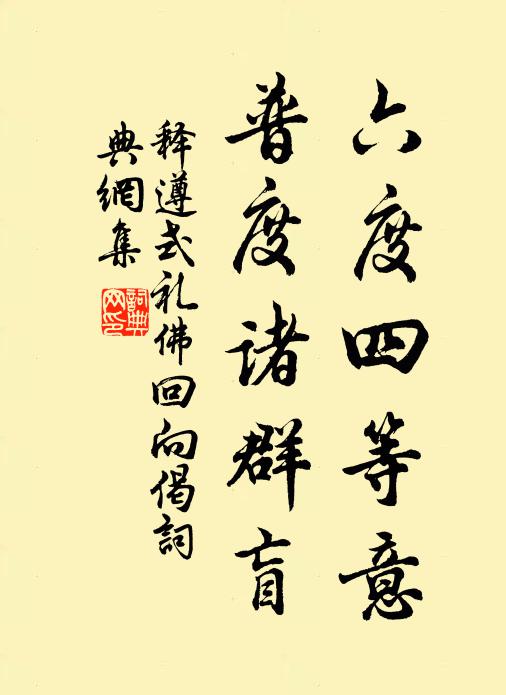 六度四等意
普度诸群盲
释遵式礼佛回向偈詞
典網集
詞典网印